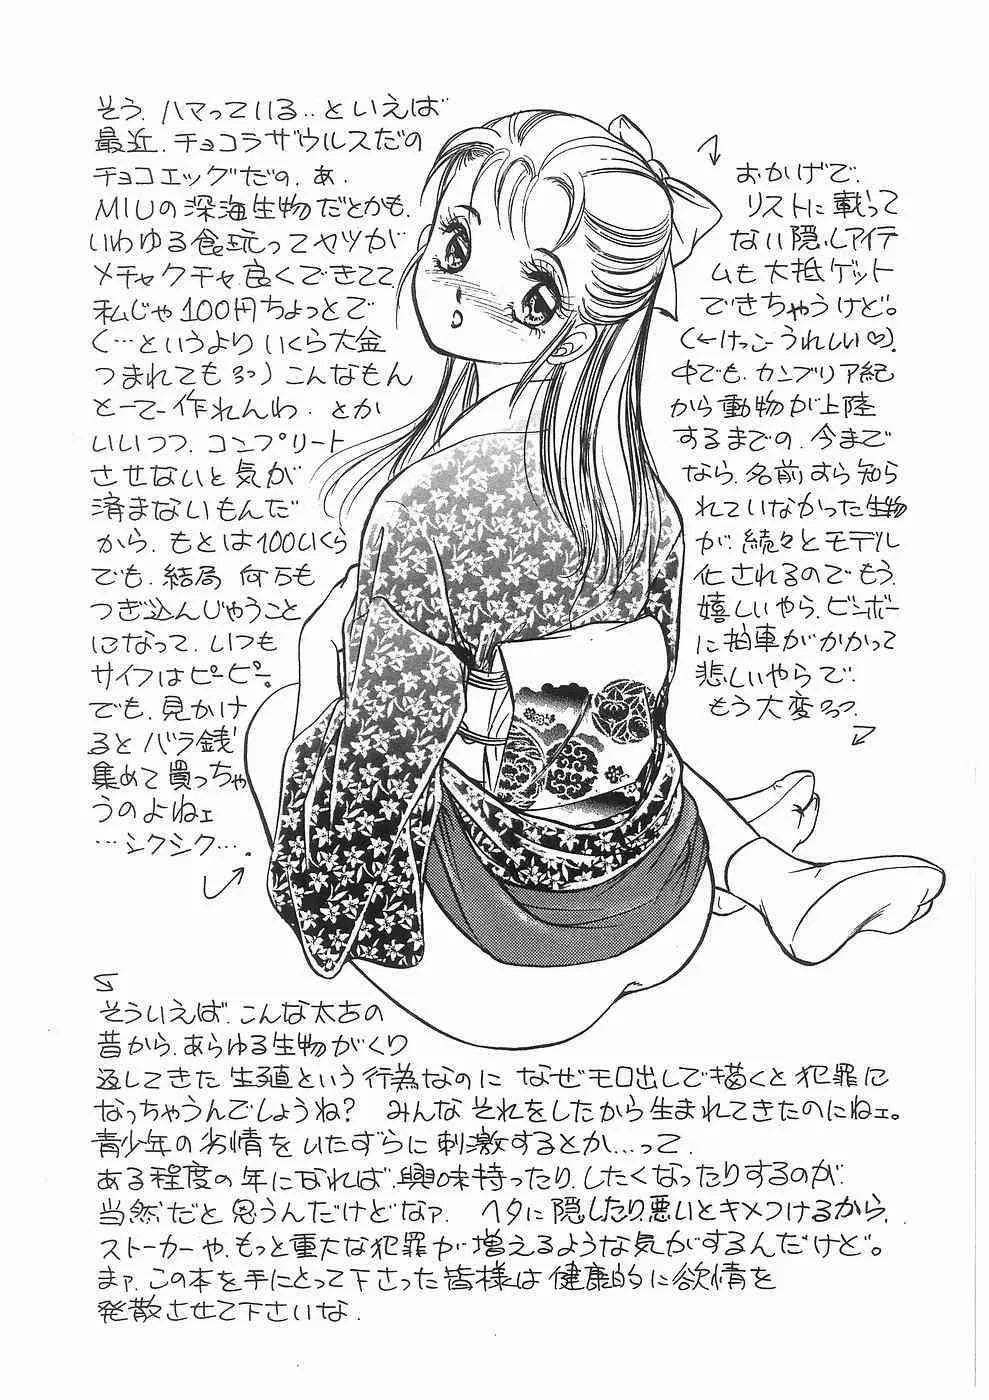 そう、ハマっている‥といえば
最近、チョコラザウルスだの
チョコエッグだの、あ、
MIUの深海生物だとかも、
いわゆる食玩ってヤツが
メチャクチャ良くできてて、
私じゃ100円ちょっとで
(…というよりいくら大金
つまれても) こんなもん
とーてー作れんわ、とか
いいつつ、コンプリート
させないと気が
済まないもんだ
から、もとは100いくら
でも、結局 何万も
つぎ込んじゃうこと
になって、いつも
サイフはピーピー。
でも、見かけ
るとバラ銭
集めて買っちゃ
うのよねェ
…シクシク…。
おかげで、
リストに載って
ない隠しアイテ
ムも大抵ゲット
できちゃうけど。
(←けっこーうれしい♡)。
中でも、カンブリア紀
から動物が上陸
するまでの、今まで
なら、名前すら知ら
れていなかった生物
が、続々とモデル
化されるのでもう、
嬉しいやら、ビンボー
に拍車がかかって
悲しいやらで、
もう大変
そういえば、こんな太古の
昔から、あらゆる生物がくり
返してきた生殖という行為なのに なぜモロ出しで描くと犯罪に
なっちゃうんでしょうね? みんなそれをしたから生まれてきたのにねェ。
青少年の劣情をいたずらに刺激するとか…って、
ある程度の年になれば、興味持ったり、したくなったりするのが、
当然だと思うんだけどなァ、ヘタに隠したり、悪いとキメつけるから、
ストーカーや、もっと重大な犯罪が増えるような気がするんだけど。
まァ、この本を手にとって下さった皆様は健康的に欲情を
発散させて下さいな.